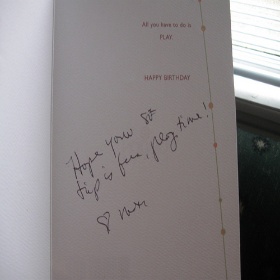 All you have to do is
PLAY.
HAPPY BIRTHDAY
Hope your 80th
is fun, play time!
♡